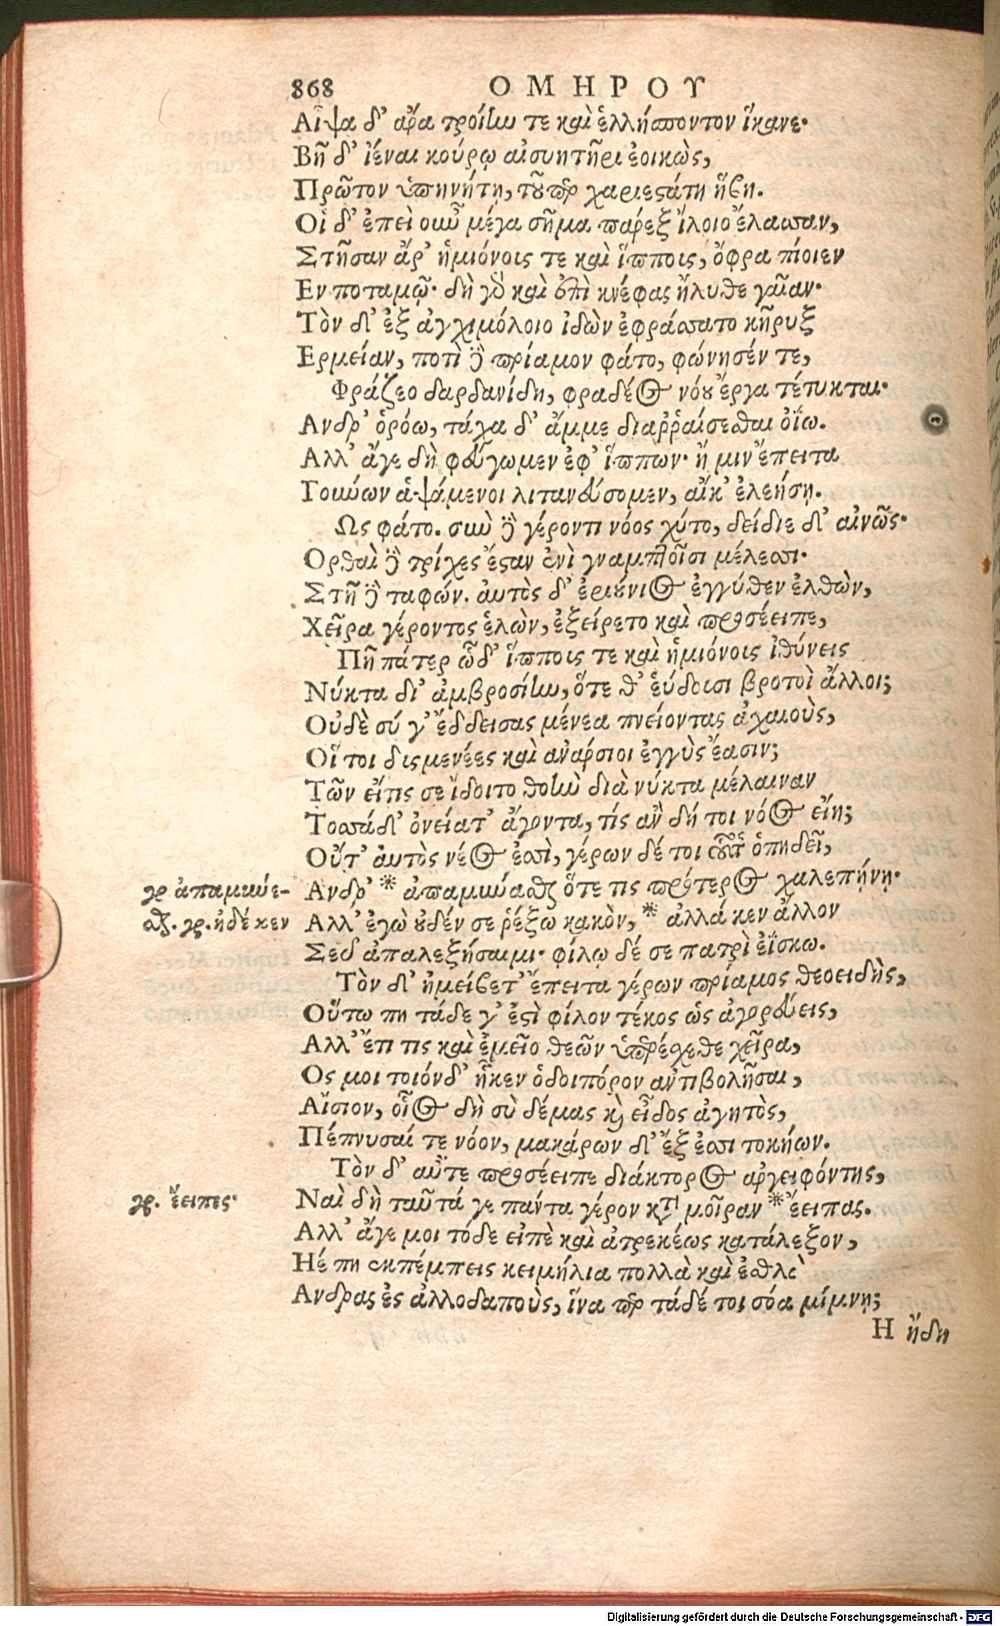 868 ΟΜΗΡΟΥ
Αἶψα δ' ἄρα τροίην τε καὶ ἑλλήσποντον ἵκανε·
Βῆ δ' ἰέναι κούρῳ αἰσυητῆρι ἐοικὼς,
Πρῶτον ὑπηνήτῃ, τοῦπερ χαριεστάτη ἥβη.
Οἱ δ' ἐπεὶ οὖν μέγα σῆμα παρέξ ἴλοιο ἔλασσαν,
Στῆσαν ἄρ' ἡμιόνοις τε καὶ ἵπποις, ὄφρα πίοιεν
Εν ποταμῷ· δὴ γὰρ καὶ ἐπὶ κνέφας ἤλυθε γαῖαν·
Τὸν δ' ἐξ ἀγχιμόλοιο ἰδὼν ἐφράσσατο κῆρυξ
Ερμείαν, ποτὶ δὲ πρίαμον φάτο, φώνησέν τε,
Φράζεο δαρδανίδη, φραδέος νόου ἔργα τέτυκται·
Ανδρ' ὁρόω, τάχα δ' ἄμμε διαῤῥαίσεσθαι ὀΐω.
Αλλ' ἄγε δὴ φεύγωμεν ἐφ' ἵππων· ἤ μιν ἔπειτα
Γούνων ἁψάμενοι λιτανεύσομεν, αἴκ' ἐλεήσῃ.
Ως φάτο. σὺν δὲ γέροντι νόος χύτο, δείδιε δ' αἰνῶς·
Ορθαὶ δὲ τρίχες ἔσαν ἐνὶ γναμπτοῖσι μέλεσσι·
Στῆ δὲ ταφών. αὐτὸς δ' ἐριούνιος ἐγγύθεν ἐλθὼν,
Χεῖρα γέροντος ἑλὼν, ἐξείρετο καὶ προσέειπε,
Πῆ πάτερ ὧδ' ἵπποις τε καὶ ἡμιόνοις ἰθύνεις
Νύκτα δι' ἀμβροσίην, ὅτε θ' εὕδουσι βροτοὶ ἄλλοι;
Οὐδὲ σύ γ' ἔδδεισας μένεα πνείοντας ἀχαιοὺς,
Οἵ τοι δυσμενέες καὶ ἀνάρσιοι ἐγγὺς ἔασιν;
Τῶν εἴ τις σε ἴδοιτο θοὴν διὰ νύκτα μέλαιναν
Τοσσάδ' ὀνείατ' ἄγοντα, τίς ἂν δή τοι νόος εἴη;
Οὔτ' αὐτὸς νέος ἐσσὶ, γέρων δέ τοι οὗτος ὀπηδεῖ,
γρ ἀπαμύνε- Ανδρ' * ἀπαμύνασθαι ὅτε τις πρότερος χαλεπήνῃ·
σθαι. γρ. ἠδέ κεν Αλλ' ἐγὼ οὐδέν σε ῥέξω κακὸν, * ἀλλά κεν ἄλλον
Σεῦ ἀπαλεξήσαιμι· φίλῳ δέ σε πατρὶ ἐΐσκω.
Τὸν δ' ἠμείβετ' ἔπειτα γέρων πρίαμος θεοειδὴς,
Οὕτω πη τάδε γ' ἐστὶ φίλον τέκος ὡς ἀγορεύεις,
Αλλ' ἔτι τις καὶ ἐμεῖο θεῶν ὑπερέσχεθε χεῖρα,
Ος μοι τοιόνδ' ἧκεν ὁδοιπόρον ἀντιβολῆσαι,
Αἴσιον, οἷος δὴ σὺ δέμας καὶ εἶδος ἀγητὸς,
Πέπνυσαί τε νόον, μακάρων δ' ἔξ ἐσσι τοκήων.
Τὸν δ' αὖτε προσέειπε διάκτορος ἀργειφόντης,
γρ. ἔειπες· Ναὶ δὴ ταῦτά γε πάντα γέρον κατὰ μοῖραν * ἔειπας.
Αλλ' ἄγε μοι τόδε εἰπὲ καὶ ἀτρεκέως κατάλεξον,
Ηέ πη ἐκπέμπεις κειμήλια πολλὰ καὶ ἐσθλὰ
Ανδρας ἐς ἀλλοδαποὺς, ἵνα περ τάδε τοι σόα μίμνῃ;
Η ἤδη
Digitalisierung gefördert durch die Deutsche Forschungsgemeinschaft - DFG